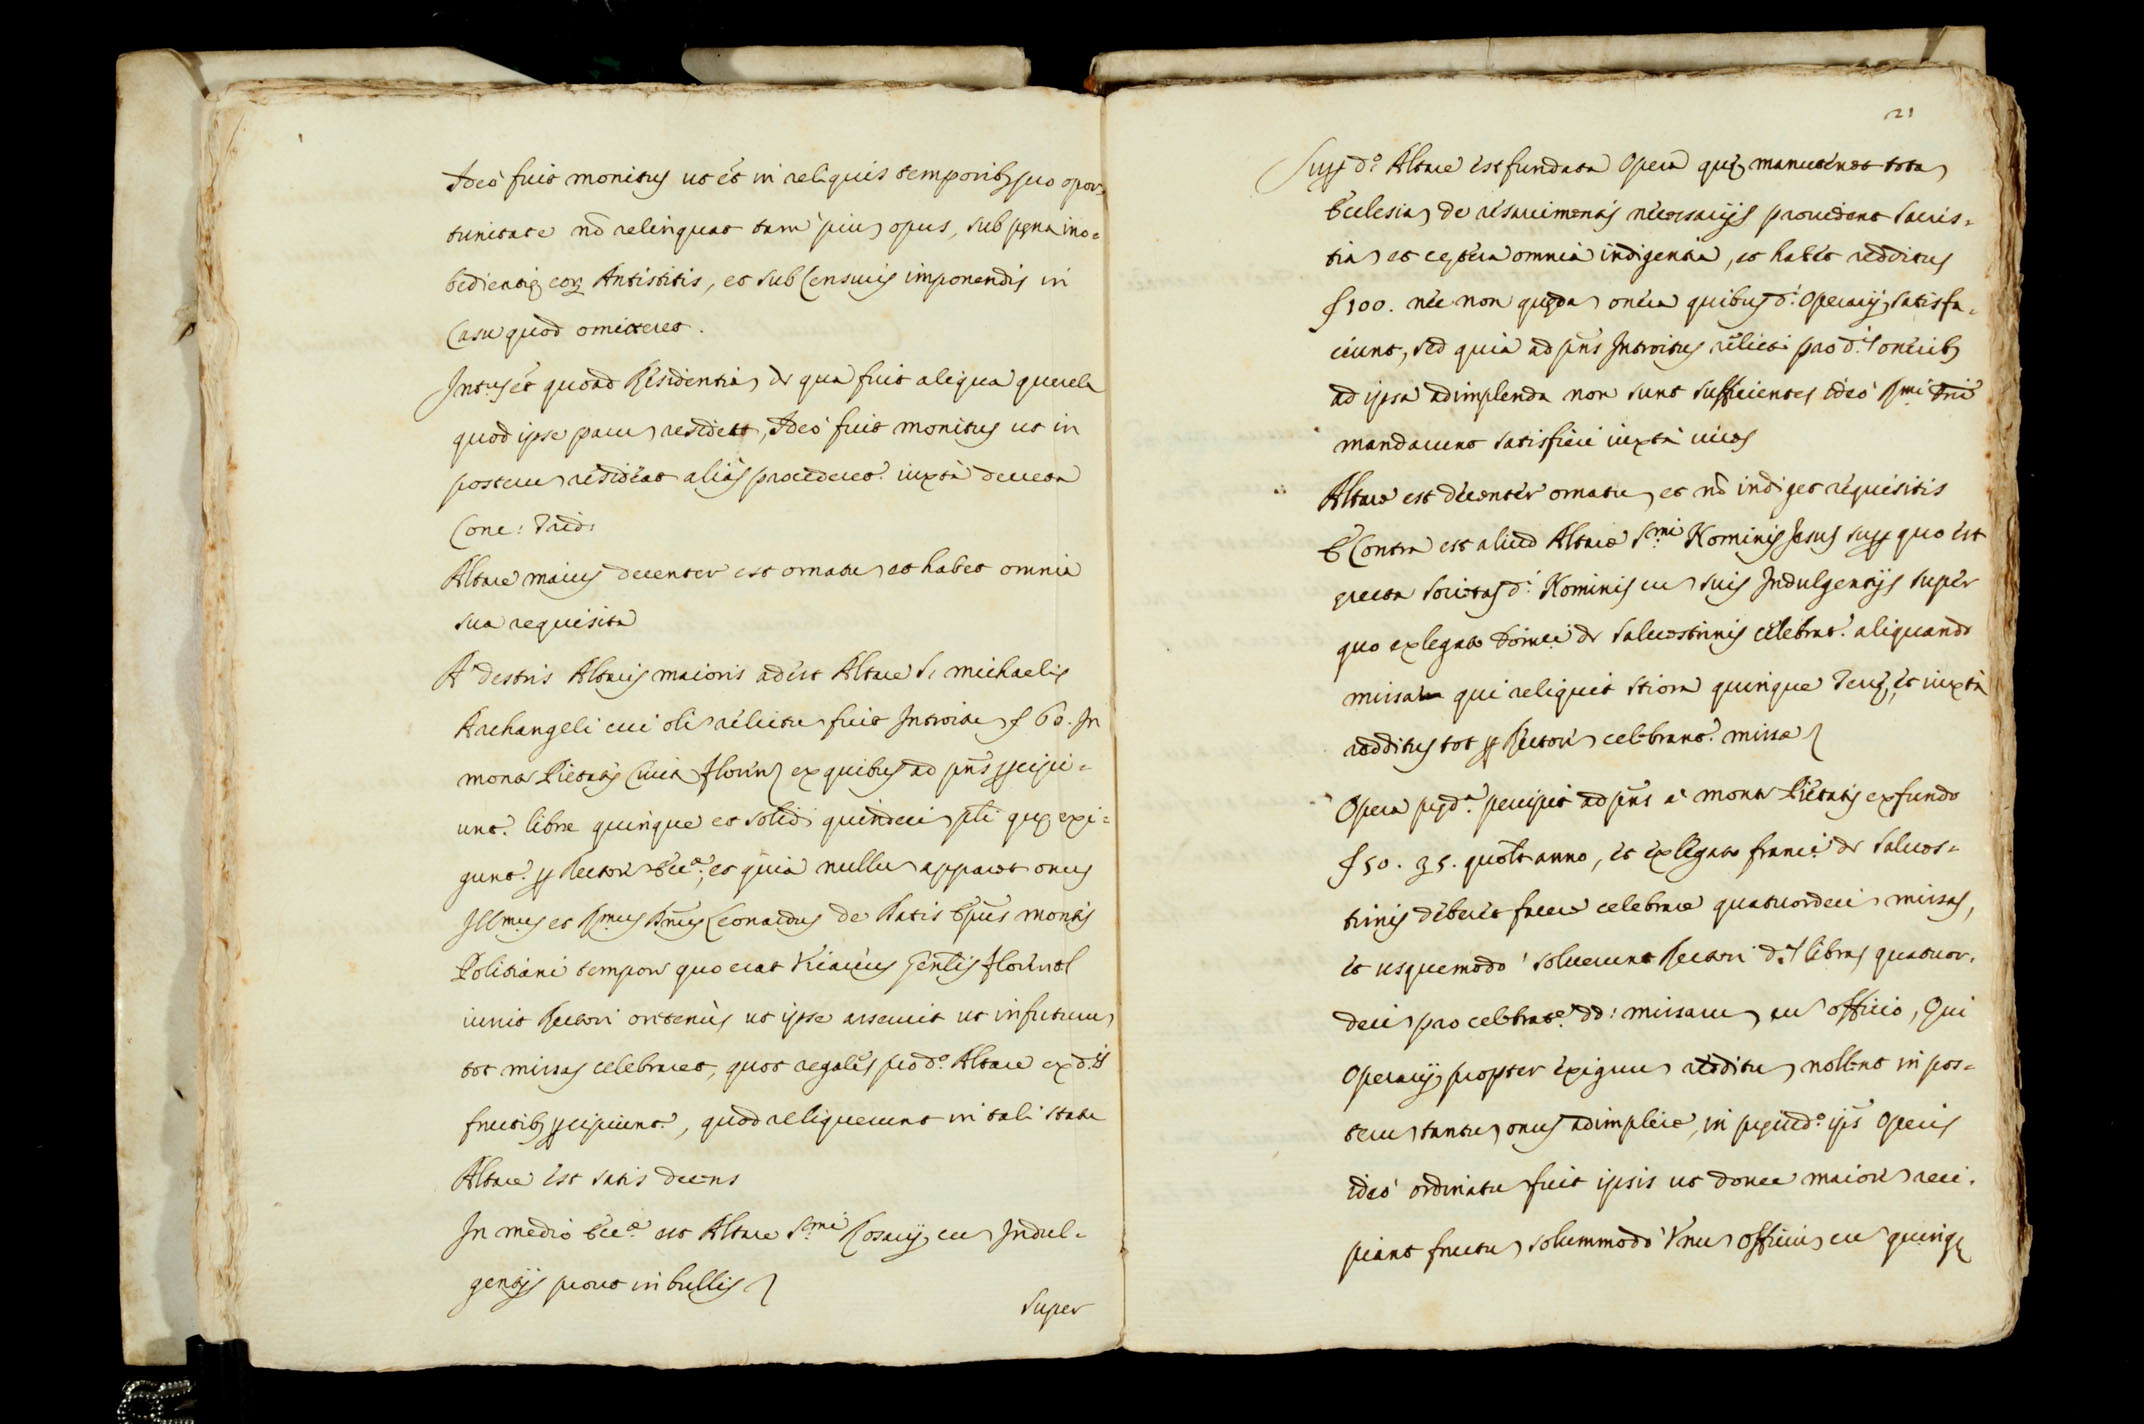 Ideo fuit monitus ut et in reliquis temporibus suo opor-
tunitate nõ relinquat tam piu opus, sub pena ino-
bedientie eorum Antistitis, et sub Censuris imponendis in
Casu quod omitteret.
quoad Residentia de qua fuit aliqua querela
quod ipse paru resideat, Ideo fuit monitus ut in
posteru resideat alias procederet.r iuxta decreta
Conc: Trid:
Altare maius decenter est ornatu et habet omnia
sua requisita
A destris Altaris maioris adest Altare S. Michaelis
Archangeli cui oli relictu fuit Introitu f 60. In
monte Pietatis Civit Floren ex quibus ad pñs percipi-
unt.r libre quinque et solidi quindeci pli que exi-
gunt.r per Rectore Ecc.e, et quia nullu apparet onus
Ill.mus et R.mus Dñus Leonardus de Epũs montis
Politiani tempore quo erat Vicarius Gen̄lis Floren
iunxit Rectori oretenus ut ipse asseruit ut in futuru
tot missas celebraret, quot regales pro d.o Altare ex d.is
fructib; percipiunt.r, quod reliquerunt in tali statu
Altare est satis decens
In medio Ecc.e est Altare S.mi Rosarij cu Indul-
gentijs prout in bullis
Super
21
Super d.o Altare est fundata Opera que manutenet tota
Ecclesia de resarcimentis necessarijs provident sacris-
tia et cetera omnia indigentia, et habet redditus
f 100. nec non queda onera quibus d.i Operarij satisfa-
ciunt, sed quia ad pñs Introitus relicti pro d.is onerib;
ad ipsa adimplenda non sunt sufficientes ideo R.mi Dñi
mandarunt satisfieri iuxta vires
Altare est decenter ornatu, et nõ indiget requisitis
E Contra est aliud Altare S.mi Nominis Jesus super quo est
erecta societas d.i Nominis cu suis Indulgentijs super
quo ex legato Domci de Salvestrinis celebrat.r aliquando
missa qui reliquit stiora quinque Terre, et iuxta
redditus tot per Rectore celebrant.r misse
Opera pred.a percipit ad pñs a monte Pietatis ex fundo
f 50. 35. quolt anno, et ex legato Franc.i de Salves-
trinis deberet facere celebrare quatuordeci missas,
et usquemodo solverunt Rectori d.as libras quatuor-
deci pro celebrat.e dd: missaru, cu officio, Qui
Operarij propter exiguu redditu nollent in pos-
teru tantu onus adimplere, in preiud.o ips Operis
ideo ordinatu fuit ipsis ut donec maiore reci-
piant fructu solummodo Unu officiu cu quinque